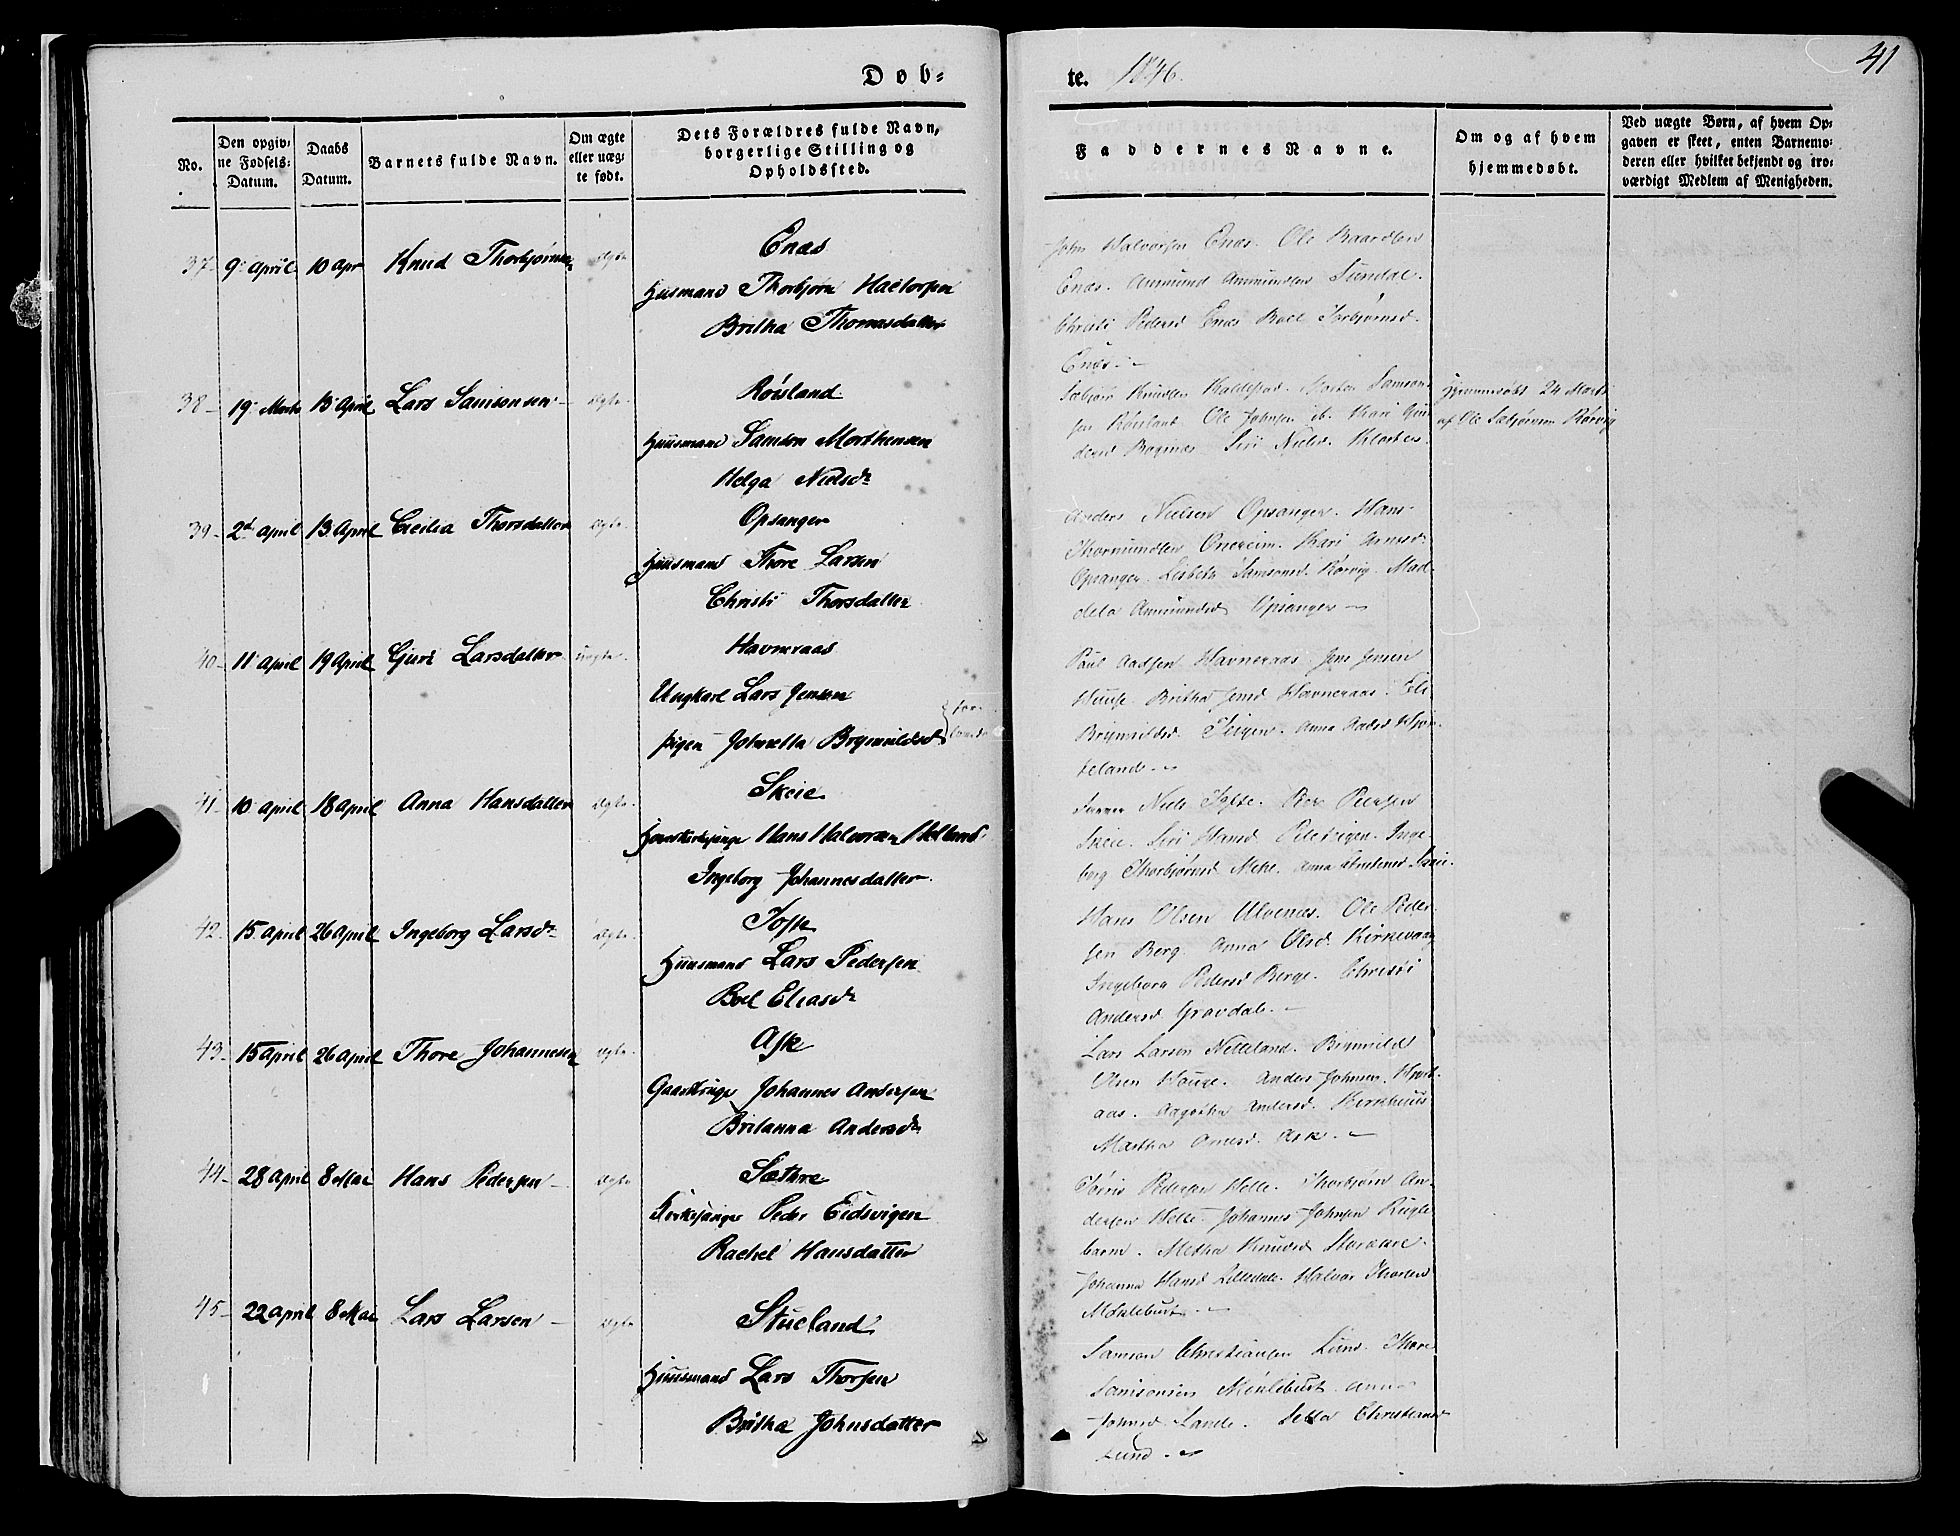 Døb=
te. 1846.
41
No.
Den opgiv=
ne Fødsels=
Datum.
Daabs
Datum.
Barnets fulde Navn.
Om ægte
eller uæg=
te født.
Dets Forældres fulde Navn,
borgerlige Stilling og
Opholdssted.
Faddernes Navne.
Om og af hvem
hjemmedøbt.
Ved uægte Børn, af hvem Op=
gaven er skeet, enten Barnemo=
deren eller hvilket bekjendt og tro=
værdigt Medlem af Menigheden.
37- 9 April 10 Apr Knud Thorbjørnsen ægte
Enæs
Huusmand Thorbjørn Hactorsen
Britha Thomasdatter
John Halvorsen Enæs. Ole Baardsen
Enæs. Ammund Ammundsen Sundal.
Christi Pedersd Enæs Boel Torbjørnsd.
Enæs.
38- 19 Marts 13 April Lars Samsonsen ægte
Røsland
Huusmand Samson Morthensen
Helga Nielsdr
Sæbjørn Knudsen Kaldestad. Morten Samson-
sen Røsland. Ole Johnsen ib. Kari Gun
dersd Bogenæs Siri Nielsd. Kloster.
Hjemmedøbt 24 Marts
af Ole Sæbjørnsen Rørvig
39- 2d April 13 April Cecilia Thorsdatter ægte
Opsanger
Huusmand Thore Larsen
Christi Thorsdatter
Anders Nielsen Opsanger. Hans
Thormundsen Onereim. Kari Arnesd.
Opsanger. Lisbeth Samsonsd. Rørvig. Mad-
dela Ammundsd Opsanger
40- 11 April 19 April Guri Larsdatter uægte
Havneraas
Ungkarl Lars Jensen
Pigen Johnetta Brynnildsd
Paul Aadsen Havneraas. Jens Jensen
Huuse. Britha Jensd Havneraas. Eli
Brynnildsd. Teigen. Anna Aadsd Hjor-
teland.
41- 10 April 18 April Anna Hansdatter ægte
Skeie
Hans Halvorsen Helland
Ingeborg Johannesdatter.
Niels Tofte. Peder Pedersen
Skeie. Siri Hansd Teigen. Inge-
borg Thorbjørnsd Mehl. Anna
42- 15 April 26 April Ingeborg Larsdr ægte
Toske
Huusmand Lars Pedersen
Boel Eliasdr
Hans Olsen Ulvenæs. Ole Peder-
sen Berg. Anna Olsd. Kirkevaag
Ingeborg Pedersd Berge. Christi
Andersd. Gravdal.
43- 15 April 26 April Thore Johannesen ægte
Aske
Gaardbruger Johannes Andersen
Britanna Andersdr
Lars Larsen Netteland. Brynnild
Olsen Hauge. Anders Johnsen. Hjort-
aas. Aagotha Andersd. Kirkhuus
Martha Arnesd. Ask.
44- 28 April 8 Mai Hans Pedersen ægte
Sæthre
Kirkesanger Peder Eidsvigen
Rachel Hansdatter
Pedersen Helle. Thorbjørn An-
dersen Helle. Johannes Johnsen Kugle-
barm. Metha Knudsd
Johanna Hansd Lilledale. Halvor Thorsen
Møhlebust.
45- 22 April 8 Mai Lars Larsen ægte
Stueland
Huusmand Lars Thorsen
Britha Johnsdatter
Samson Christiansen Lund. Thore
Samsonsen Møhlebust. Anna
Johnsd. Lande. Christiansd
Lund.